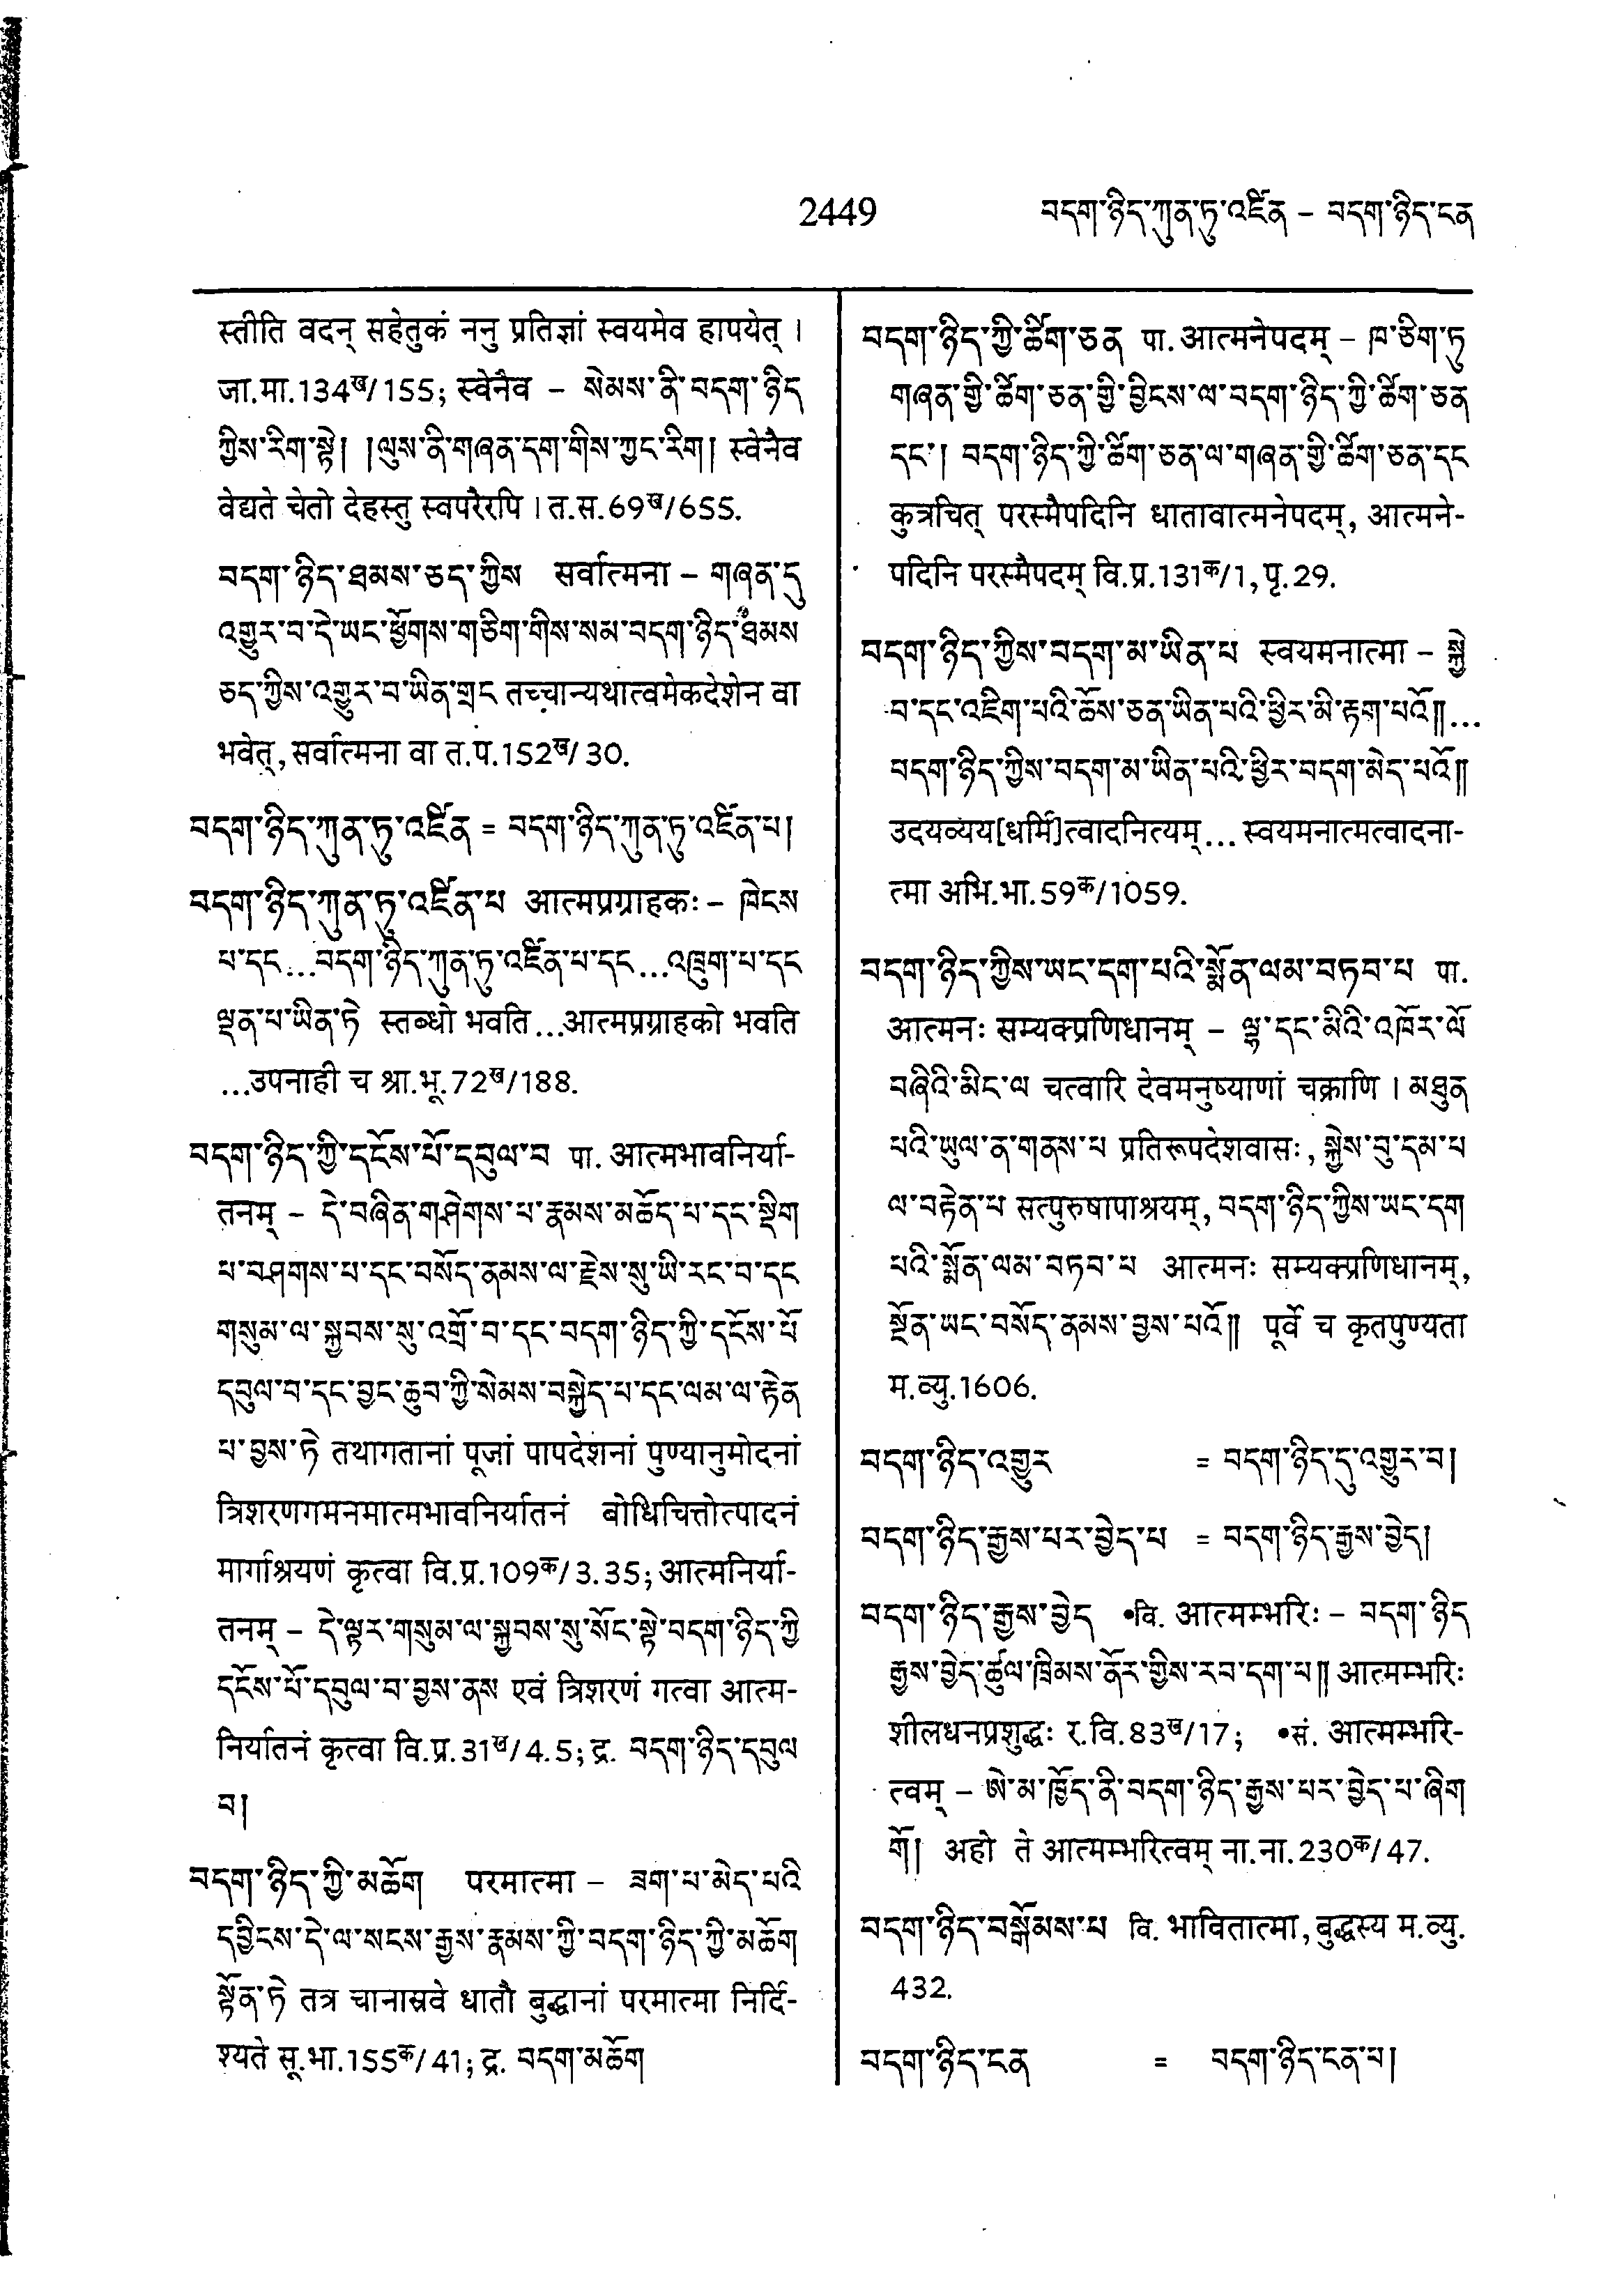 2449
བདག་ཉིད་ཀུན་ཏུ་འཛིན – བདག་ཉིད་ངན
स्तीति वदन् सहेतुकं ननु प्रतिज्ञां स्वयमेव हापयेत् ।
जा.मा.134ख/155; स्वेनैव – སེམས་ནི་བདག་ཉིད
ཀྱིས་རིག་སྟེ། །ལུས་ནི་གཞན་དག་གིས་ཀྱང་རིག། स्वेनैव
वेद्यते चेतो देहस्तु स्वपरैरपि । त.स.69ख/655.
བདག་ཉིད་ཐམས་ཅད་ཀྱིས सर्वात्मना – གཞན་དུ
འགྱུར་བ་དེ་ཡང་ཕྱོགས་གཅིག་གིས་སམ་བདག་ཉིད་ཐམས
ཅད་ཀྱིས་འགྱུར་བ་ཡིན་གྲང तच्चान्यथात्वमेकदेशेन वा
भवेत्, सर्वात्मना वा त.प.152ख/30.
བདག་ཉིད་ཀུན་ཏུ་འཛིན = བདག་ཉིད་ཀུན་ཏུ་འཛིན་པ།
བདག་ཉིད་ཀུན་ཏུ་འཛིན་པ आत्मप्रग्राहकः – ཁེངས
པ་དང...བདག་ཉིད་ཀུན་ཏུ་འཛིན་པ་དང...འཁྲུག་པ་དང
ལྡན་པ་ཡིན་ཏེ स्तब्धो भवति...आत्मप्रग्राहको भवति
...उपनाही च श्रा.भू.72ख/188.
བདག་ཉིད་ཀྱི་དངོས་པོ་དབུལ་བ पा. आत्मभावनिर्या-
तनम् – དེ་བཞིན་གཤེགས་པ་རྣམས་མཆོད་པ་དང་སྡིག
པ་བཤགས་པ་དང་བསོད་ནམས་ལ་རྗེས་སུ་ཡི་རང་བ་དང
གསུམ་ལ་སྐྱབས་སུ་འགྲོ་བ་དང་བདག་ཉིད་ཀྱི་དངོས་པོ
དབུལ་བ་དང་བྱང་ཆུབ་ཀྱི་སེམས་བསྐྱེད་པ་དང་ལམ་ལ་རྟེན
པ་བྱས་ཏེ तथागतानां पूजां पापदेशनां पुण्यानुमोदनां
त्रिशरणगमनमात्मभावनिर्यातनं बोधिचित्तोत्पादनं
मार्गाश्रयणं कृत्वा वि.प्र.109क/3.35; आत्मनिर्या-
तनम् – དེ་ལྟར་གསུམ་ལ་སྐྱབས་སུ་སོང་སྟེ་བདག་ཉིད་ཀྱི
དངོས་པོ་དབུལ་བ་བྱས་ནས एवं त्रिशरणं गत्वा आत्म-
निर्यातनं कृत्वा वि.प्र.31ख/4.5; द्र. བདག་ཉིད་དབུལ
བ།
བདག་ཉིད་ཀྱི་མཆོག परमात्मा – ཟག་པ་མེད་པའི
དབྱིངས་དེ་ལ་སངས་རྒྱས་རྣམས་ཀྱི་བདག་ཉིད་ཀྱི་མཆོག
སྟོན་ཏེ तत्र चानास्रवे धातौ बुद्धानां परमात्मा निर्दि-
श्यते सू.भा.155क/41; द्र. བདག་མཆོག
བདག་ཉིད་ཀྱི་ཚིག་ཅན पा. आत्मनेपदम् – ཁ་ཅིག་ཏུ
གཞན་གྱི་ཚིག་ཅན་གྱི་བྱིངས་ལ་བདག་ཉིད་ཀྱི་ཚིག་ཅན
དང་། བདག་ཉིད་ཀྱི་ཚིག་ཅན་ལ་གཞན་གྱི་ཚིག་ཅན་དང
कुत्रचित् परस्मैपदिनि धातावात्मनेपदम्, आत्मने-
पदिनि परस्मैपदम् वि.प्र.131क/1, पृ.29.
བདག་ཉིད་ཀྱིས་བདག་མ་ཡིན་པ स्वयमनात्मा – སྐྱེ
བ་དང་འཇིག་པའི་ཆོས་ཅན་ཡིན་པའི་ཕྱིར་མི་རྟག་པའོ༎...
བདག་ཉིད་ཀྱིས་བདག་མ་ཡིན་པའི་ཕྱིར་བདག་མེད་པའོ༎
उदयव्यय[धर्मि]त्वादनित्यम्... स्वयमनात्मत्वादना-
त्मा अभि.भा.59क/1059.
བདག་ཉིད་ཀྱིས་ཡང་དག་པའི་སྨོན་ལམ་བཏབ་པ पा.
आत्मनः सम्यक्प्रणिधानम् – ལྷ་དང་མིའི་འཁོར་ལོ
བཞིའི་མིང་ལ चत्वारि देवमनुष्याणां चक्राणि । མཐུན
པའི་ཡུལ་ན་གནས་པ प्रतिरूपदेशवासः, སྐྱེས་བུ་དམ་པ
ལ་བརྟེན་པ सत्पुरुषापाश्रयम्, བདག་ཉིད་ཀྱིས་ཡང་དག
པའི་སྨོན་ལམ་བཏབ་པ आत्मनः सम्यक्प्रणिधानम्,
སྔོན་ཡང་བསོད་ནམས་བྱས་པའོ༎ पूर्वे च कृतपुण्यता
म.व्यु.1606.
བདག་ཉིད་འགྱུར = བདག་ཉིད་དུ་འགྱུར་བ།
བདག་ཉིད་རྒྱས་པར་བྱེད་པ = བདག་ཉིད་རྒྱས་བྱེད།
བདག་ཉིད་རྒྱས་བྱེད •वि. आत्मम्भरिः – བདག་ཉིད
རྒྱས་བྱེད་ཚུལ་ཁྲིམས་ནོར་གྱིས་རབ་དག་པ༎ आत्मम्भरिः
शीलधनप्रशुद्धः र.वि.83ख/17; •सं. आत्मम्भरि-
त्वम् – ཨེ་མ་ཁྱོད་ནི་བདག་ཉིད་རྒྱས་པར་བྱེད་པ་ཞིག
གོ། अहो ते आत्मम्भरित्वम् ना.ना.230क/47.
བདག་ཉིད་བསྒོམས་པ वि. भावितात्मा, बुद्धस्य म.व्यु.
432.
བདག་ཉིད་ངན = བདག་ཉིད་ངན་པ།